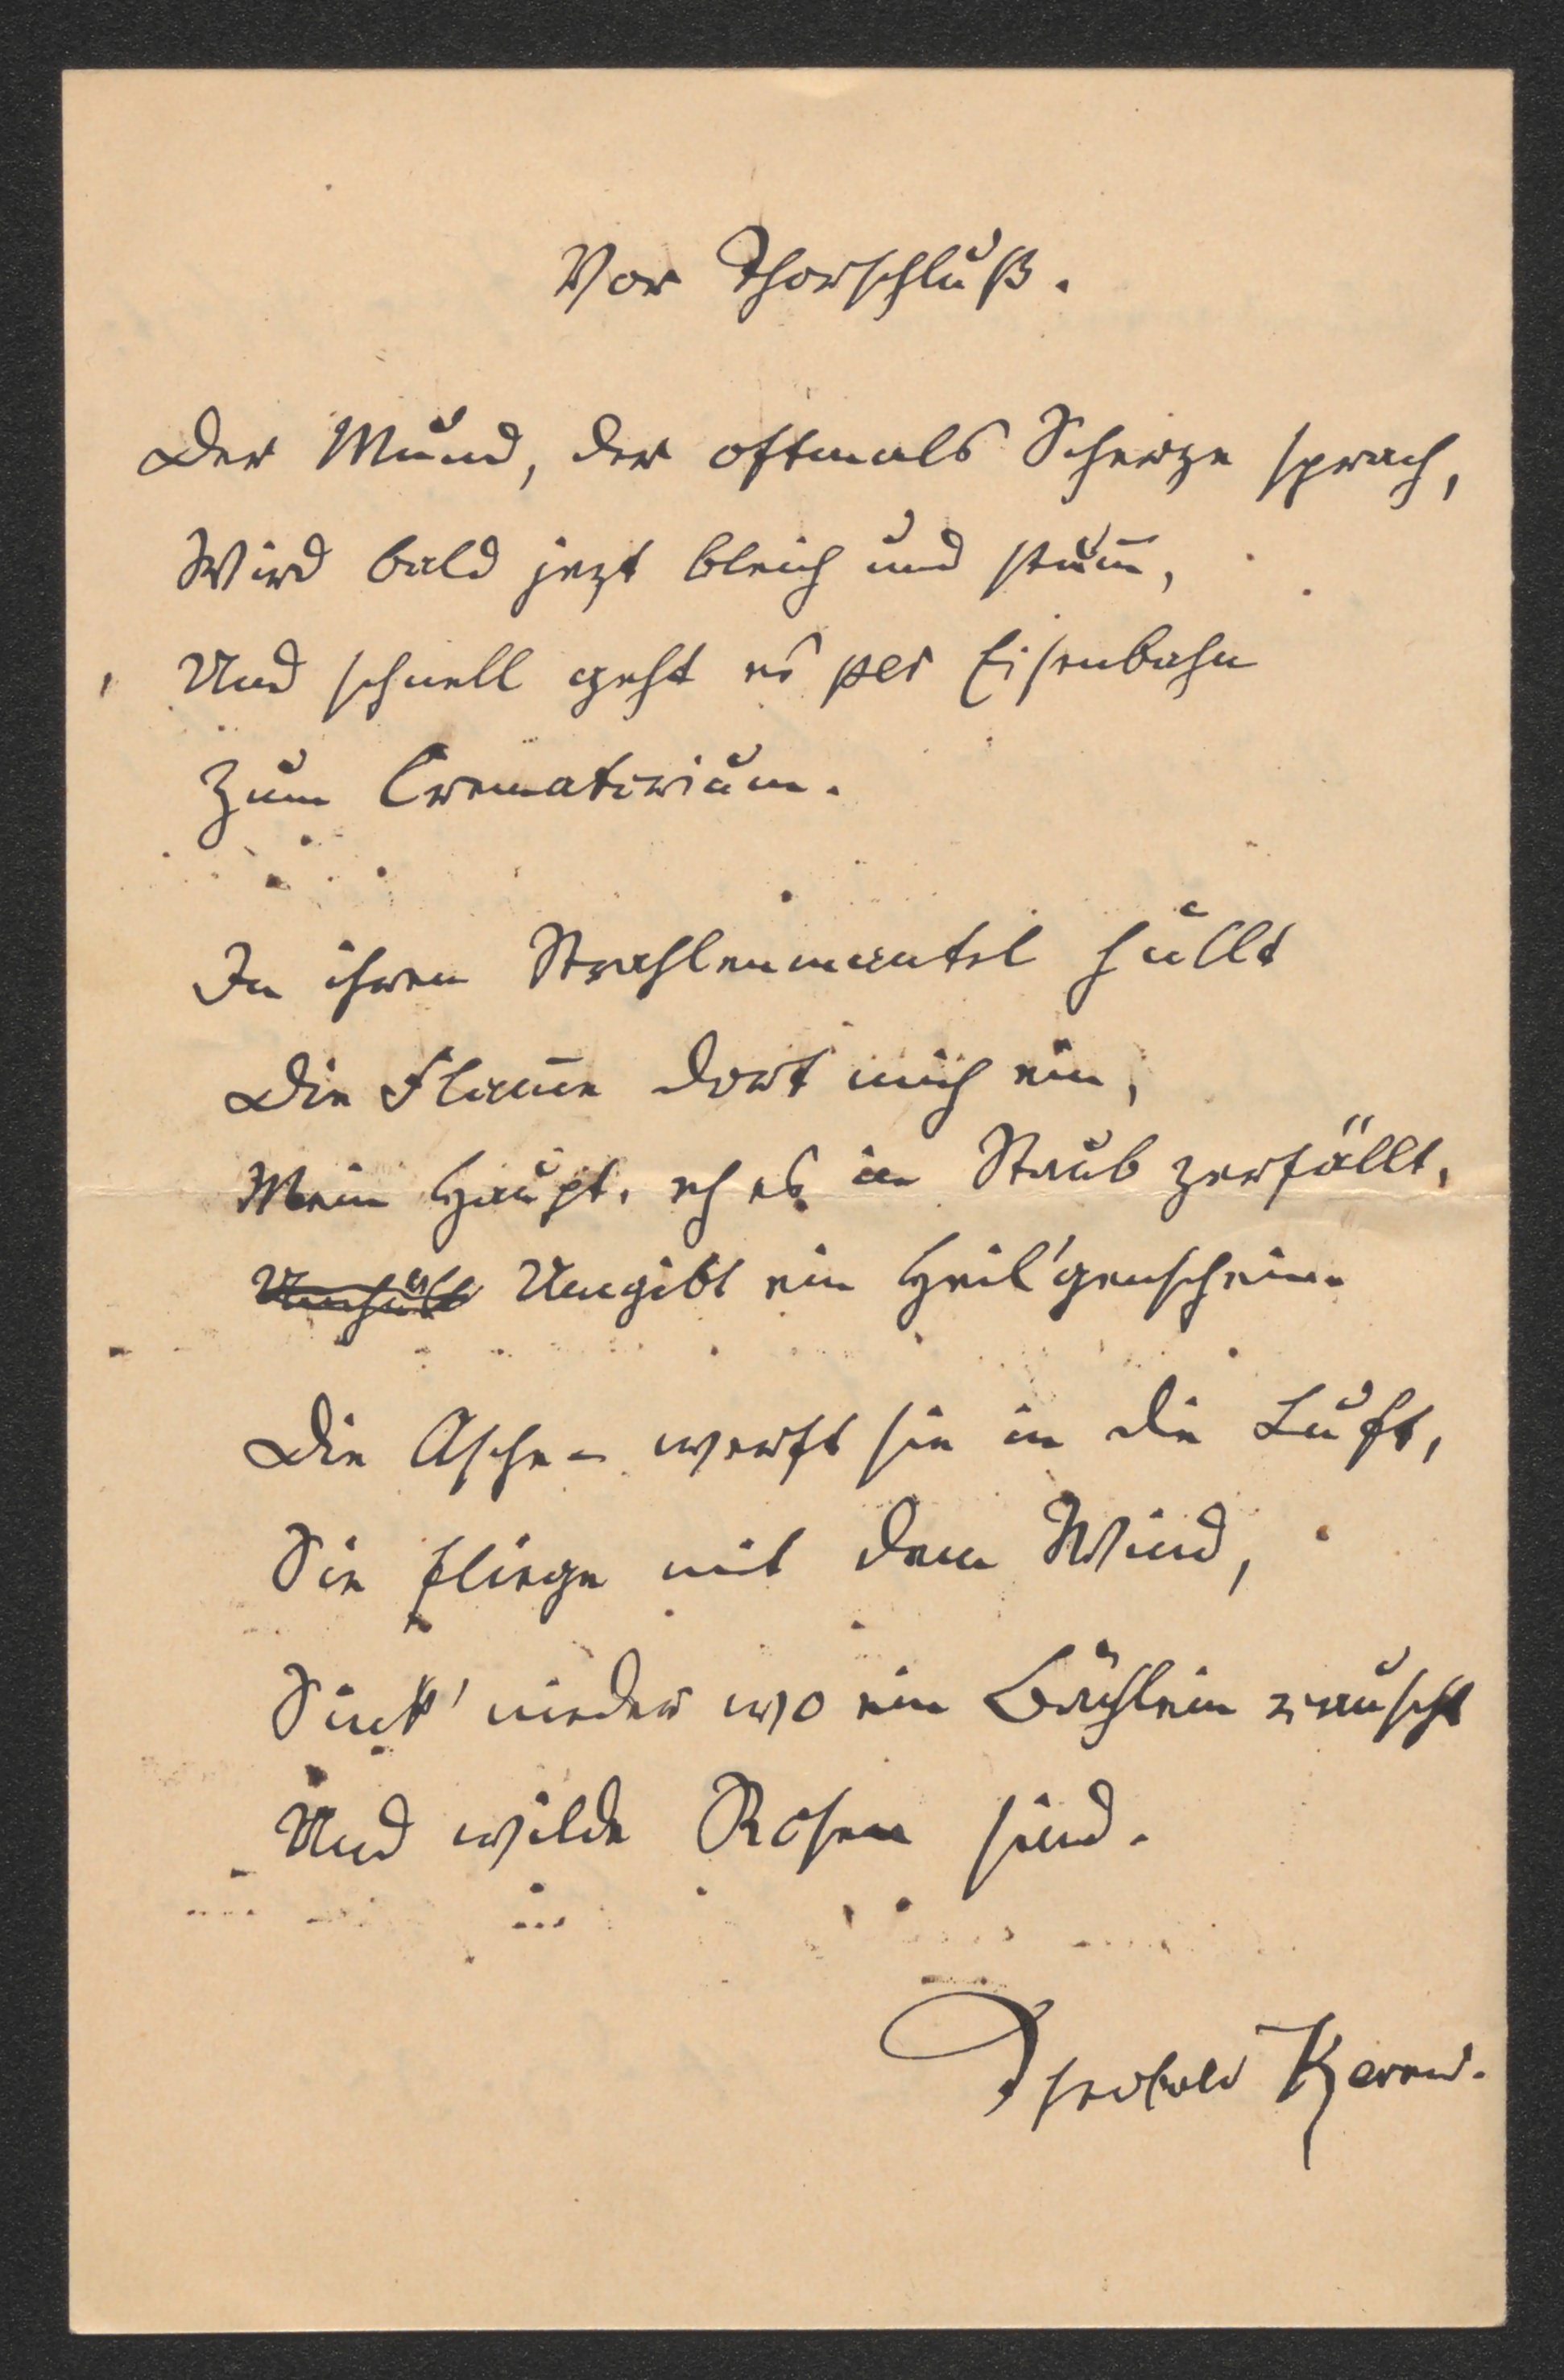 Vor Thorschluß.
Der Mund, der oftmals Scherze sprach,
Wird bald jezt bleich und stum̄,
Und schnell geht es per Eisenbahn
Zum Crematorium.
In ihren Strahlenmantel hüllt
Die Flam̄e dort mich ein,
Mein Haupt, eh es in Staub zerfällt,
Umhüllt Umgibt ein Heil'genschein.
Die Asche – werft sie in die Luft,
Sie fliege mit dem Wind,
Sink' nieder wo ein Bächlein rauscht
Und wilde Rosen sind.
Theobald Kerner.